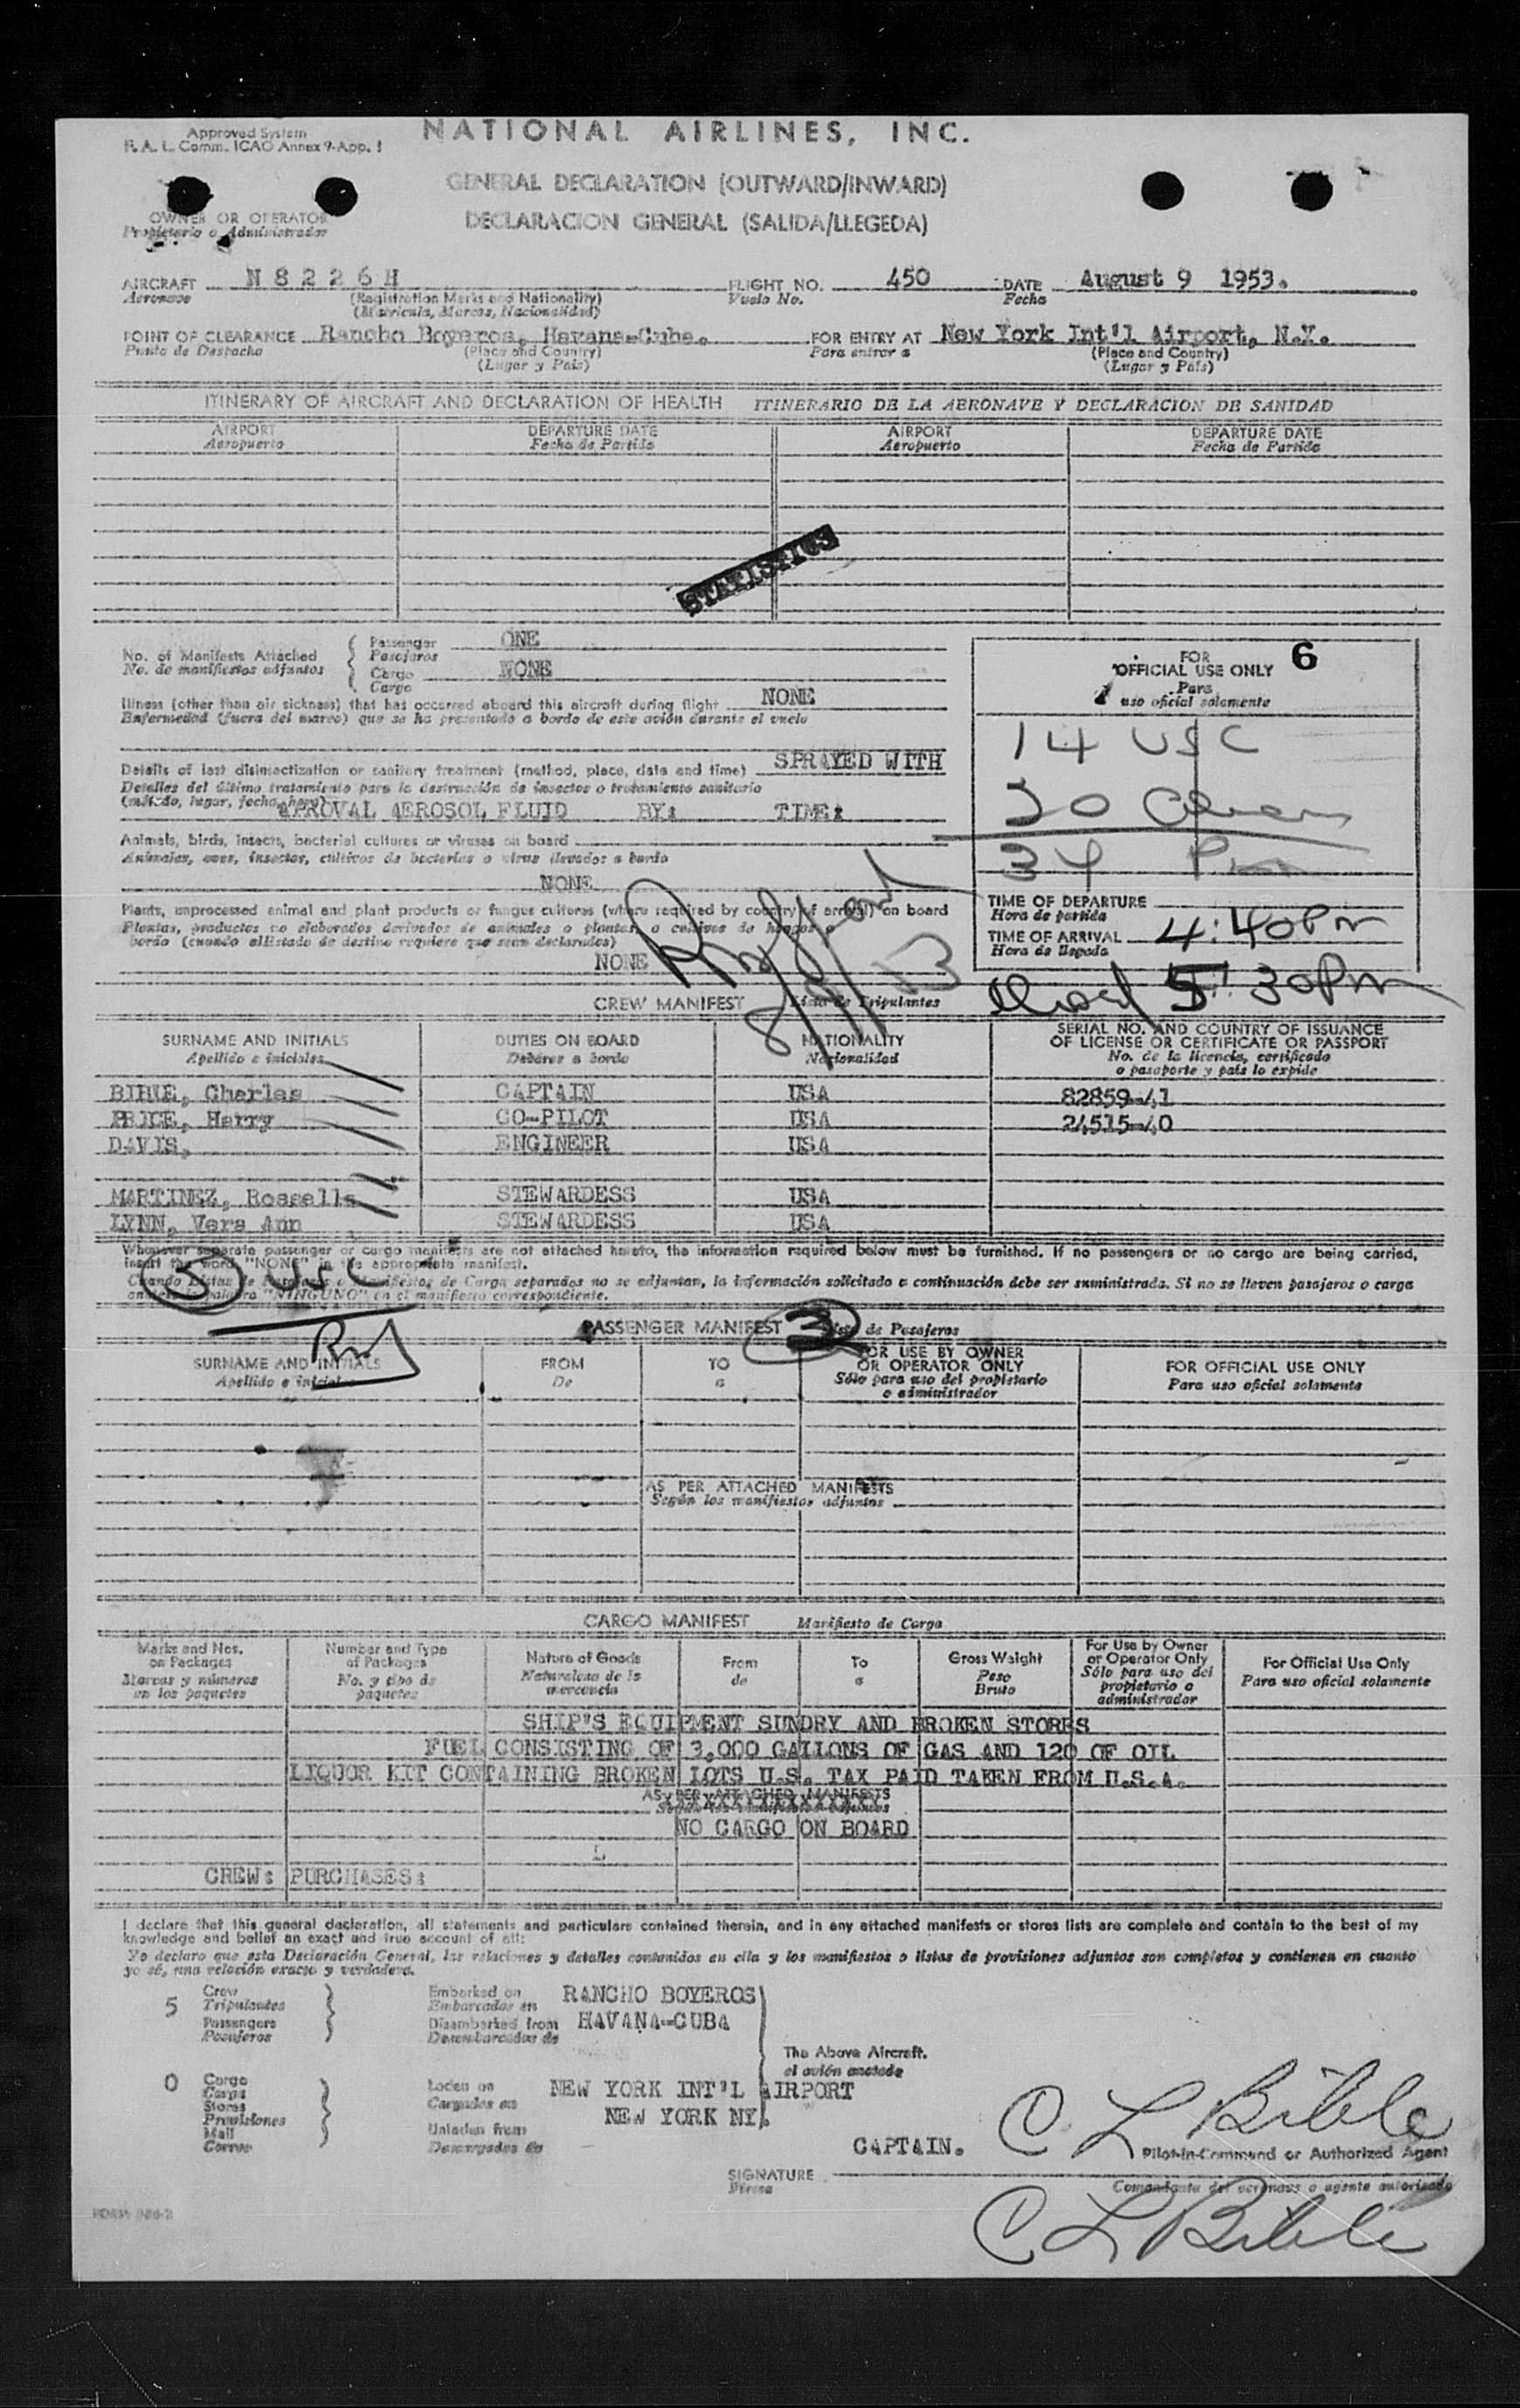 Approved System
F. A. L. Comm. ICAO Annex 9-App. 1
NATIONAL AIRLINES, INC.
GENERAL DECLARATION (OUTWARD/INWARD)
DECLARACION GENERAL (SALIDA/LLEGEDA)
OWNER OR OPERATOR
Propietario o Administrador
AIRCRAFT N8226H FLIGHT NO. 450 DATE August 9 1953.
Aeronave (Registration Marks and Nationality) Vuelo No. Fecha
(Matricula, Marcas, Nacionalidad)
POINT OF CLEARANCE Rancho Boyeros, Havana-Cuba. FOR ENTRY AT New York Int'l Airport, N.Y.
Punto de Despacho (Place and Country) Para entrar a (Place and Country)
(Lugar y País) (Lugar y País)
ITINERARY OF AIRCRAFT AND DECLARATION OF HEALTH ITINERARIO DE LA AERONAVE Y DECLARACION DE SANIDAD
AIRPORT DEPARTURE DATE AIRPORT DEPARTURE DATE
Aeropuerto Fecha de Partida Aeropuerto Fecha de Partida
STATISTICS
No. of Manifests Attached Passenger ONE
No. de manifiestos adjuntos Pasajeros
Cargo NONE
Cargo
FOR 6
OFFICIAL USE ONLY
Para
uso oficial solamente
Illness (other than air sickness) that has occurred aboard this aircraft during flight NONE
Enfermedad (fuera del mareo) que se ha presentado a bordo de este avión durante el vuelo
14 USC
Details of last disinsectization or sanitary treatment (method, place, date and time) SPRAYED WITH
Detalles del último tratamiento para la destrucción de insectos o tratamiento sanitario
(método, lugar, fecha, hora)
APROVAL AEROSOL FLUID BY: TIME:
20
34
Animals, birds, insects, bacterial cultures or viruses on board
Animales, aves, insectos, cultivos de bacterias o virus llevados a bordo
NONE
Plants, unprocessed animal and plant products or fungus cultures (where required by country of arrival) on board
Plantas, productos no elaborados derivados de animales o plantas, o cultivos de hongos a
bordo (cuando el Estado de destino requiere que sean declarados)
NONE
TIME OF DEPARTURE
Hora de partida
TIME OF ARRIVAL 4:40 Pm
Hora de llegada
5:30 Pm
8/9/53
CREW MANIFEST Lista de Tripulantes
SURNAME AND INITIALS DUTIES ON BOARD NATIONALITY SERIAL NO. AND COUNTRY OF ISSUANCE
Apellido e iniciales Deberes a bordo Nacionalidad OF LICENSE OR CERTIFICATE OR PASSPORT
No. de la licencia, certificado
o pasaporte y país lo expide
BIBLE, Charles CAPTAIN USA 82859-41
PRICE, Harry CO-PILOT USA 24515-40
DAVIS, ENGINEER USA
MARTINEZ, Rossella STEWARDESS USA
LYNN, Vera Ann STEWARDESS USA
Whenever separate passenger or cargo manifests are not attached hereto, the information required below must be furnished. If no passengers or no cargo are being carried,
insert the word "NONE" in the appropriate manifest.
Cuando Listas de Pasajeros o Manifiestos de Carga separados no se adjuntan, la información solicitada a continuación debe ser suministrada. Si no se lleven pasajeros o carga
anote la palabra "NINGUNO" en el manifiesto correspondiente.
5 USC
PASSENGER MANIFEST 3 Lista de Pasajeros
SURNAME AND INITIALS FROM TO FOR USE BY OWNER FOR OFFICIAL USE ONLY
Apellido e iniciales De a OR OPERATOR ONLY Para uso oficial solamente
Sólo para uso del propietario
o administrador
AS PER ATTACHED MANIFESTS
Según los manifiestos adjuntos
CARGO MANIFEST Manifiesto de Carga
Marks and Nos. Number and Type Nature of Goods From To Gross Weight For Use by Owner For Official Use Only
on Packages of Packages Naturaleza de la de a Peso or Operator Only Para uso oficial solamente
Marcas y números No. y tipo de mercancia Bruto Sólo para uso del
en los paquetes paquetes propietario o
administrador
SHIP'S EQUIPMENT SUNDRY AND BROKEN STORES
FUEL CONSISTING OF 3,000 GALLONS OF GAS AND 120 OF OIL
LIQUOR KIT CONTAINING BROKEN LOTS U.S. TAX PAID TAKEN FROM U.S.A.
AS PER ATTACHED MANIFESTS
Según los manifiestos adjuntos
NO CARGO ON BOARD
L
CREW: PURCHASES:
I declare that this general declaration, all statements and particulars contained therein, and in any attached manifests or stores lists are complete and contain to the best of my
knowledge and belief an exact and true account of all:
Yo declaro que esta Declaración General, las relaciones y detalles contenidos en ella y los manifiestos o listas de provisiones adjuntos son completos y contienen en cuanto
yo sé, una relación exacta y verdadera.
5 Crew Embarked on RANCHO BOYEROS
Tripulantes Embarcados en
Passengers Disembarked from HAVANA-CUBA
Pasajeros Desembarcados de
The Above Aircraft.
el avión anotado
0 Cargo Laden on NEW YORK INT'L AIRPORT
Carga Cargados en
Stores NEW YORK NY.
Provisiones
Mail Unladen from
Correo Descargados de
CAPTAIN. C L Bible
Pilot-in-Command or Authorized Agent
SIGNATURE
Firma
Comandante del aeronave o agente autorizado
C L Bible
FORM 986-2